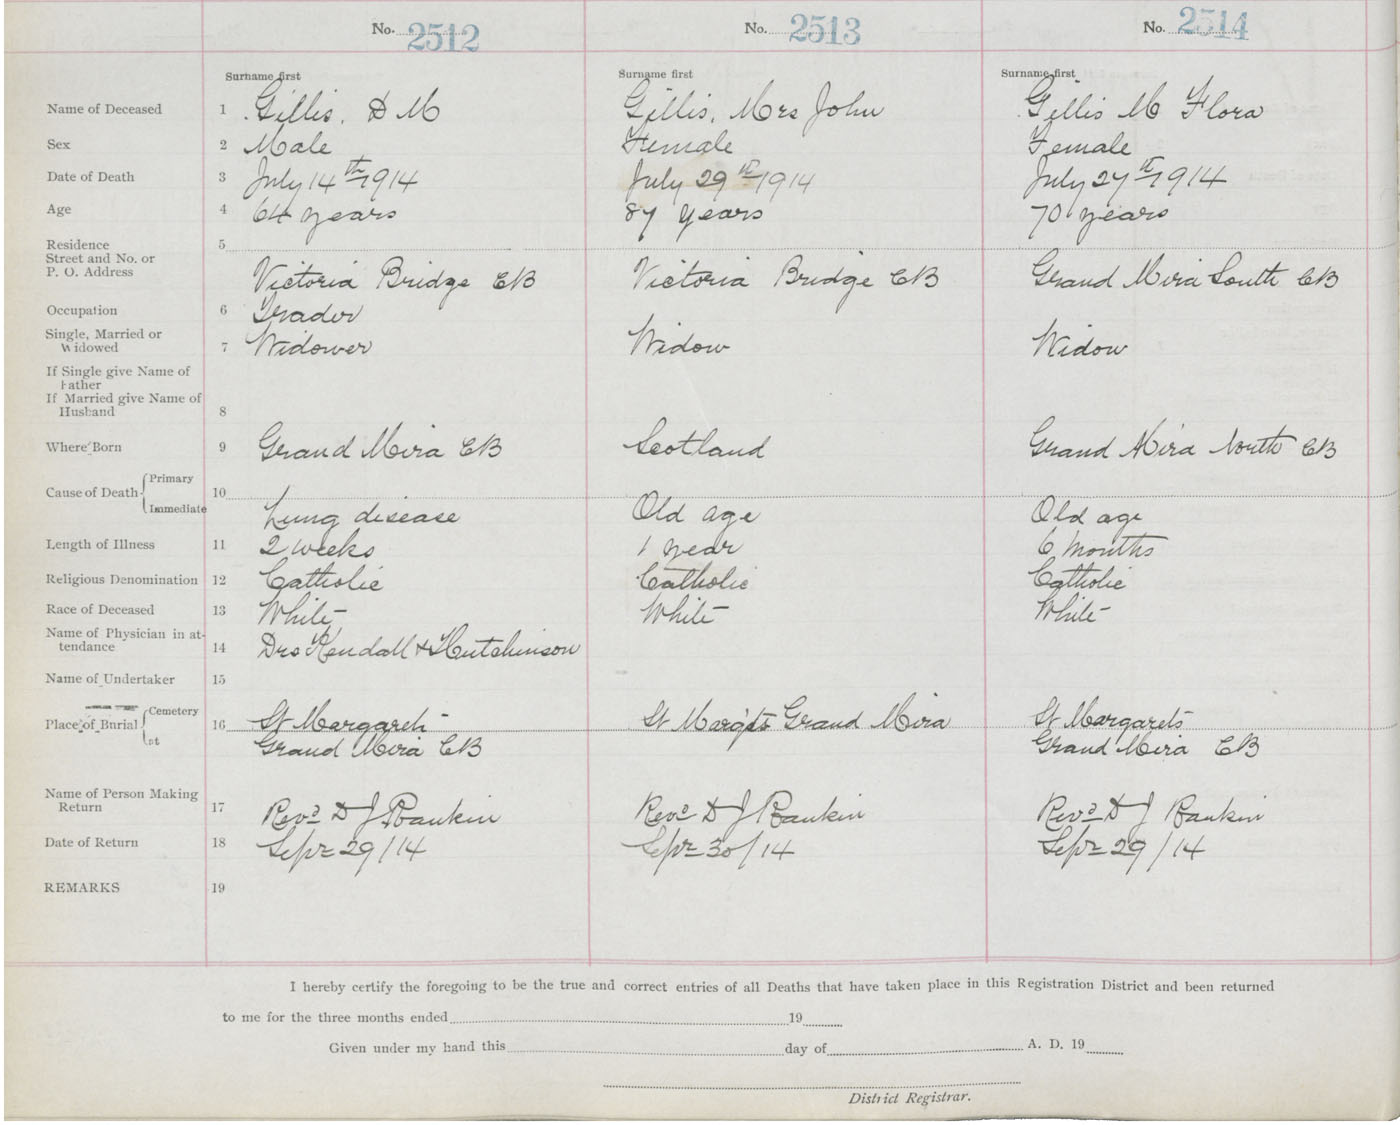 No. 2512 No. 2513 No. 2514
Surname first Surname first Surname first
Name of Deceased 1 Gillis, D M Gillis, Mrs John Gillis M Flora
Sex 2 Male Female Female
Date of Death 3 July 14th 1914 July 29th 1914 July 27th 1914
Age 4 64 years 87 years 70 years
Residence 5
Street and No. or
P. O. Address Victoria Bridge CB Victoria Bridge CB Grand Mira South CB
Occupation 6 Trader
Single, Married or
Widowed 7 Widower Widow Widow
If Single give Name of
Father
If Married give Name of
Husband 8
Where Born 9 Grand Mira CB Scotland Grand Mira North CB
Primary
Cause of Death 10
Immediate Lung disease Old age Old age
Length of Illness 11 2 weeks 1 year 6 months
Religious Denomination 12 Catholic Catholic Catholic
Race of Deceased 13 White White White
Name of Physician in at-
tendance 14 Drs Kendall & Hutchinson
Name of Undertaker 15
Cemetery
Place of Burial 16 St Margarets St Margts Grand Mira St Margarets
at Grand Mira CB Grand Mira CB
Name of Person Making
Return 17 Revd D J Rankin Revd D J Rankin Revd D J Rankin
Date of Return 18 Sept 29/14 Sept 30/14 Sept 29/14
REMARKS 19
I hereby certify the foregoing to be the true and correct entries of all Deaths that have taken place in this Registration District and been returned
to me for the three months ended 19
Given under my hand this day of A. D. 19
District Registrar.